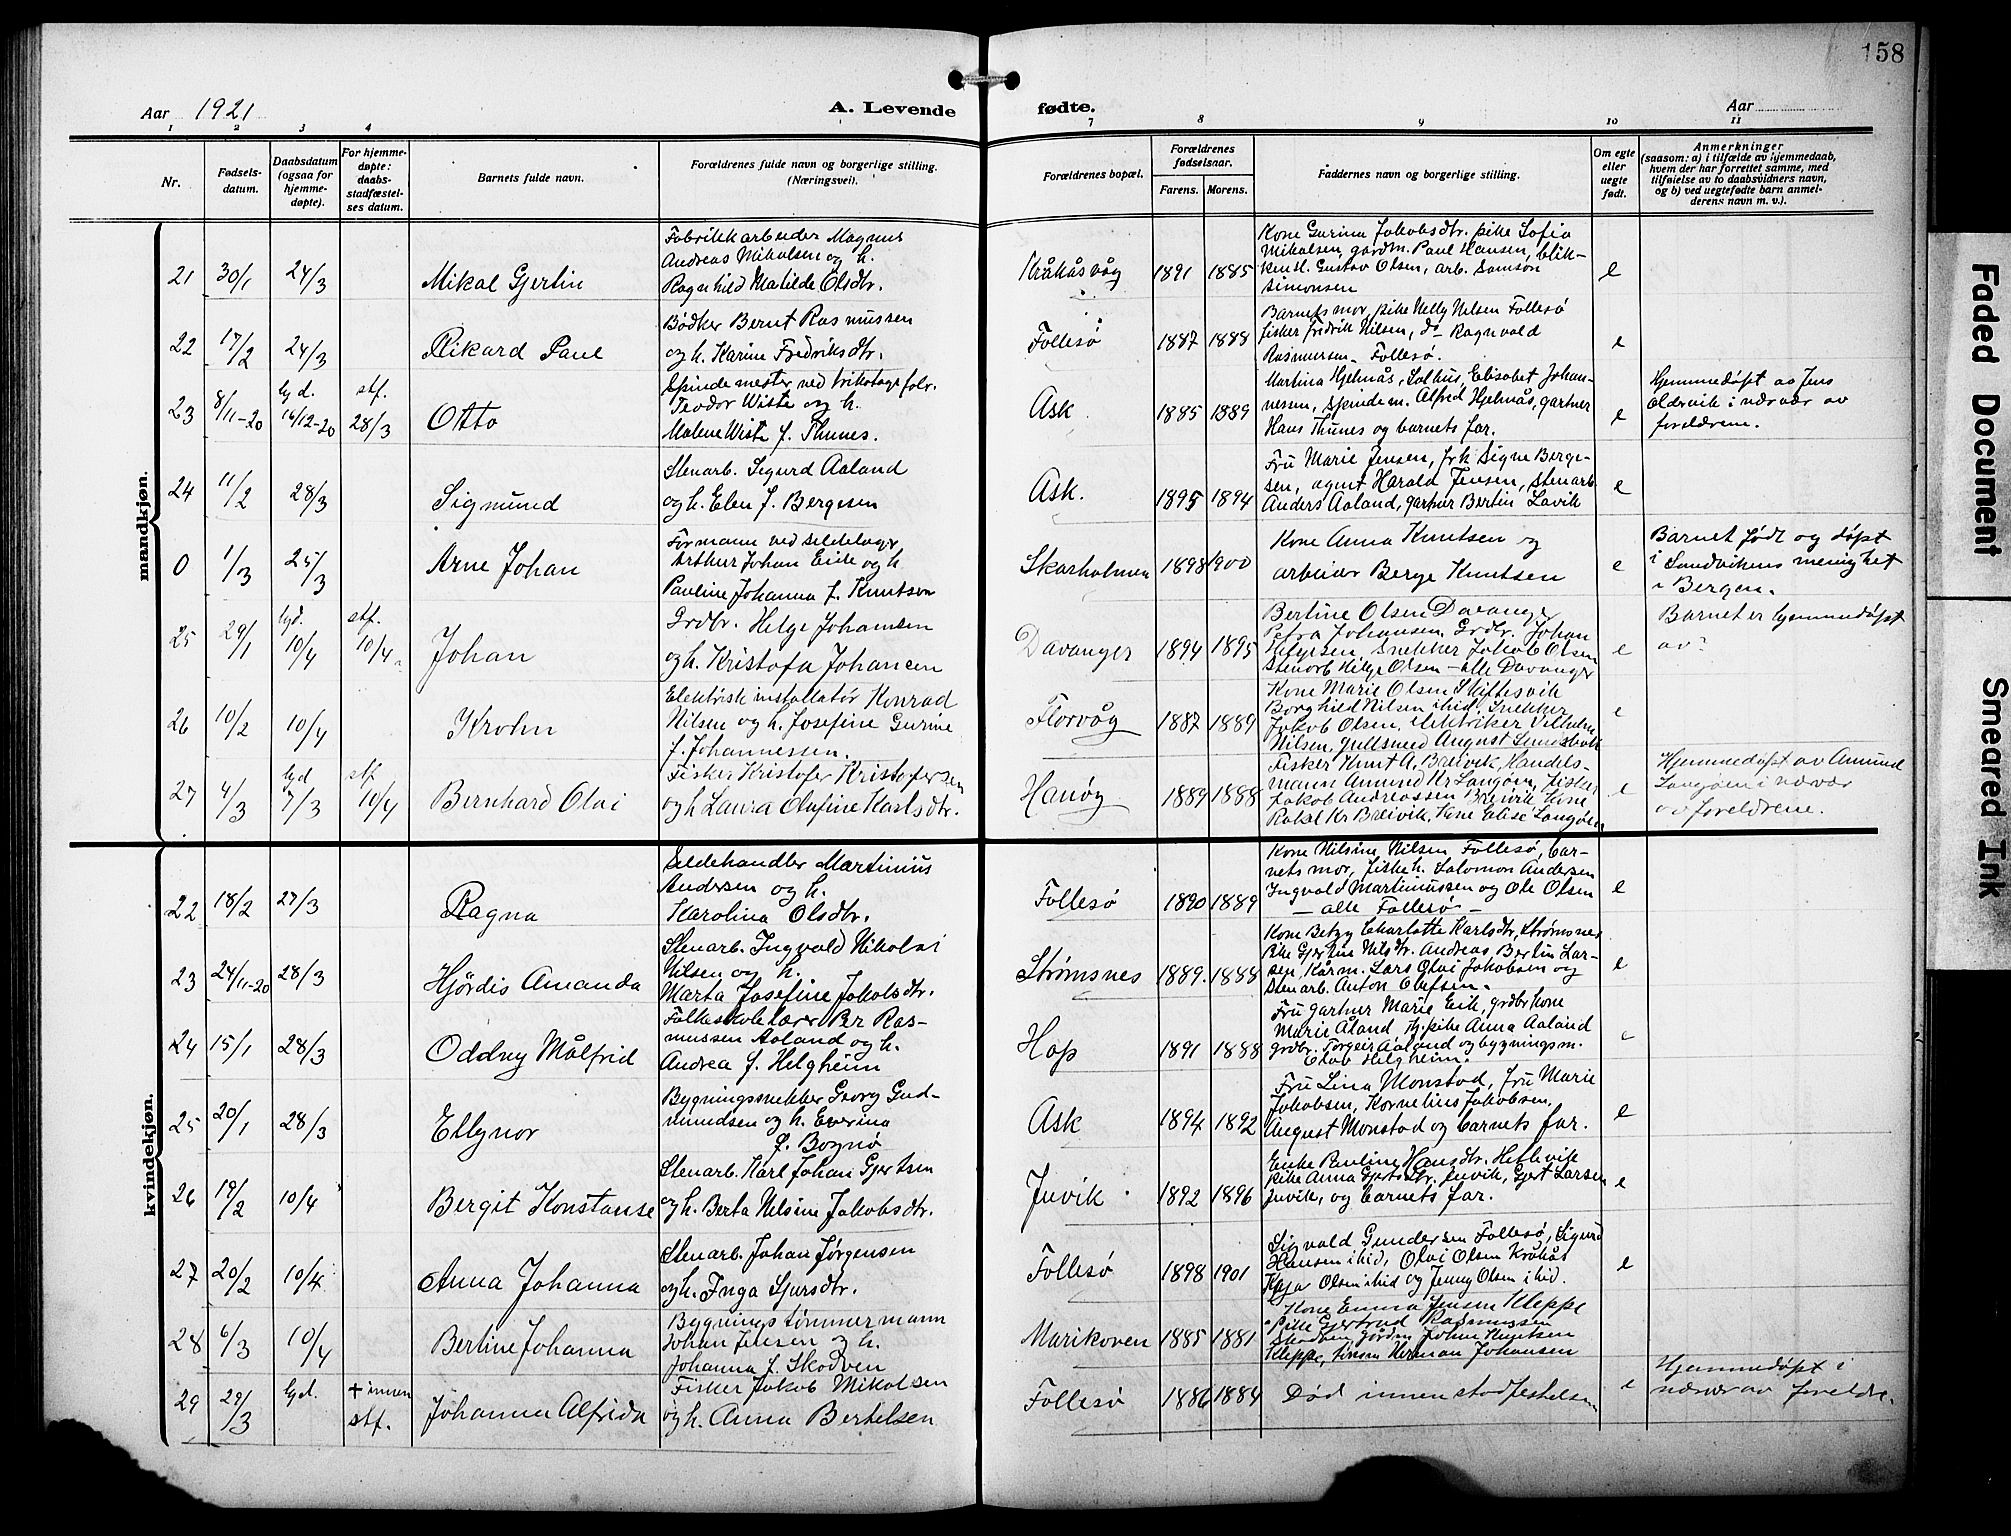 158
Aar 1921
A. Levende fødte.
Aar
1 2 3 4 7 8 9 10 11
Nr.
Fødsels-
datum.
Daabsdatum
(ogsaa for
hjemme-
døpte).
For hjemme-
døpte:
daabs-
stadfæstel-
ses datum.
Barnets fulde navn.
Forældrenes fulde navn og borgerlige stilling.
(Næringsvei).
Forældrenes bopæl.
Forældrenes
fødselsaar.
Farens. Morens.
Faddernes navn og borgerlige stilling.
Om egte
eller
uegte
født.
Anmerkninger
(saasom: a) i tilfælde av hjemmedaab,
hvem der har forrettet samme, med
tilføielse av to daabsvidners navn,
og b) ved uegtefødte barn anmel-
derens navn m. v.).
mandkjøn.
21 30/1 24/3 Mikal Gjertin
Fabrikkarbeider Magnus
Andreas Mikalsen og h.
Ragnhild Matilde Olsdtr.
Kråkåsvåg 1891 1885
Kone Gurina Jakobsdtr. pike Sofia
Mikalsen, gårdm. Paul Hansen, blik-
kensl. Gustav Olsen, arb. Samson
Simonsen
e
22 17/2 24/3 Rikard Paul
Bødker Bernt Rasmussen
og h. Karine Fredriksdtr.
Follesø 1887 1888
Barnets mor, pike Nelly Nilsen Follesø
fisker Fredrik Nilsen, do Ragnvald
Rasmussen - Follesø.
e
23 8/11-20 hj d. 16/12-20 stf. 28/3 Otto
Spindemester ved trikotagefabr.
Teodor Wiste og h.
Malene Wiste f. Thunes.
Ask 1885 1889
Martina Hjelmås, Salhus, Elisabet Johan-
nessen, spindem. Alfred Hjelmås, gartner
Hans Thunes og barnets far.
e
Hjemmedøpt av Jens
Oldervik i nærvær av
foreldrene.
24 11/2 28/3 Sigmund
Stenarb. Sigurd Aaland
og h. Elen f. Bergesen
Ask. 1895 1894
Fru Marie Jensen, frk Signe Berge-
sen, agent Harald Jensen, stenarb
Anders Aaland, gartner Bertin Lavik
e
0 1/3 25/3 Arne Johan
Formann ved sildelager
Arthur Johan Eide og h
Pauline Johanna f. Knutsen
Skarholmen 1898 1900
Kone Anna Knutsen og
arbeider Berge Knutsen
e
Barnet født og døpt
i Sandvikens menighet
i Bergen.
25 29/1 hjd. 10/4 stf. 10/4 Johan
Grdbr. Helge Johansen
og h. Kristofa Johansen
Davanger 1894 1895
Bertine Olsen Davanger
Petra Johansen, Grdbr. Johan
Helgesen, Snekker Jakob Olsen
Stenarb Helge Olsen - alle Davanger
e
Barnet er hjemmedøpt
av?
26 10/2 10/4 Krohn
Elektrisk installatør Konrad
Nilsen og h. Josefine Gurine
f. Johannessen.
Florvåg 1887 1889
Kone Marie Olsen Skiftesvik
Borghild Nilsen ibid, Snekker
Jakob Olsen, elektriker Vilhelm
Nilsen, gullsmed August
e
27 4/3 hjd 7/3 stf 10/4 Bernhard Olai
Fisker Kristofer Kristofersen
og h Laura Olufine Karlsdtr.
Hanøy 1889 1888
Fisker Knut A. Breivik, Handels-
mann Amund Kr Langøen, fisker
Jakob Andreassen Breivik, Kone
Rakel Kr Breivik, Kone Elise Langøen
e
Hjemmedøpt av Amund
Langøen i nærvær
av foreldrene.
kvindekjøn.
22 18/2 27/3 Ragna
Sildehandler Martinius
Andersen og h.
Karolina Olsdtr.
Follesø 1890 1889
Kone Nilsine Nilsen Follesø, bar-
nets mor, fiskeh. Salomon Andersen
Ingvald Martinussen og Ole Olsen
- alle Follesø -
e
23 24/11-20 28/3 Hjördis Amanda
Stenarb. Ingvald Nikolai
Nilsen og h.
Marta Josefine Jakobsdtr.
Strømsnes 1889. 1888
Kone Betzy Charlotte Karlsdtr, Strømsnes
Pike Gjertine Nilsdtr. Andreas Bertin Lar-
sen, Kårm. Lars Olai Jakobsen og
Stenarb. Anton Olufsen.
e
24 15/1 28/3 Oddny Målfrid
Folkeskolelærer Per Ras-
mussen Aaland og h.
Andrea f. Helgheim
Hop 1891 1888
Fru gartner Marie Eik, grdbrkone
Marie Åland, pike Anna Aaland
grdbr. Torgeir Aaland og bygningsm.
Olav Helgheim.
e
25 20/1 28/3 Ellynor
Bygningssnekker Georg Gud-
mundsen og h. Everina
f. Bognø
Ask 1894 1892
Fru Lina Monstad, fru Marie
Jakobsen, Kornelius Jakobsen,
August Monstad og barnets far.
e
26 19/2 10/4 Bergit Konstanse
Stenarb. Karl Johan Gjertsen
og h. Berta Nilsine Jakobsdtr.
Juvik. 1892 1896
Enke Pauline Hansdtr. Hetlevik
Pike Anna Gjertsdtr. Juvik, Gjert Larsen
Juvik, og barnets far.
e
27 20/2 10/4 Anna Johanna
Stenarb. Johan Jørgensen
og h. Inga Sjursdtr.
Follesø 1898 1901
Sigvald Gundersen Follesø, Sigurd
Hansen ibid, Olai Olsen Kråkås
Kaja Olsen ibid og Jenny Olsen ibid.
e
28 6/3 10/4 Bertine Johanna
Bygningstømmermann
Johan Jensen og h.
Johanna f. Skodven
Marikoven 1885 1881
Kone Emma Jensen Kleppe
Pike Gjertrud Rasmussen
Skodven, Johan Knutsen
Kleppe, Herman Johansen
29 29/3 hjd. + innen stf. Johanna Alfrida
Fisker Jakob Mikalsen
og h. Anna Bertelsen
Follesø 1886 1884
Død innen stadfestelsen
e
Hjemmedøpt i
nærvær av foreldre.
Faded Document
Smeared Ink